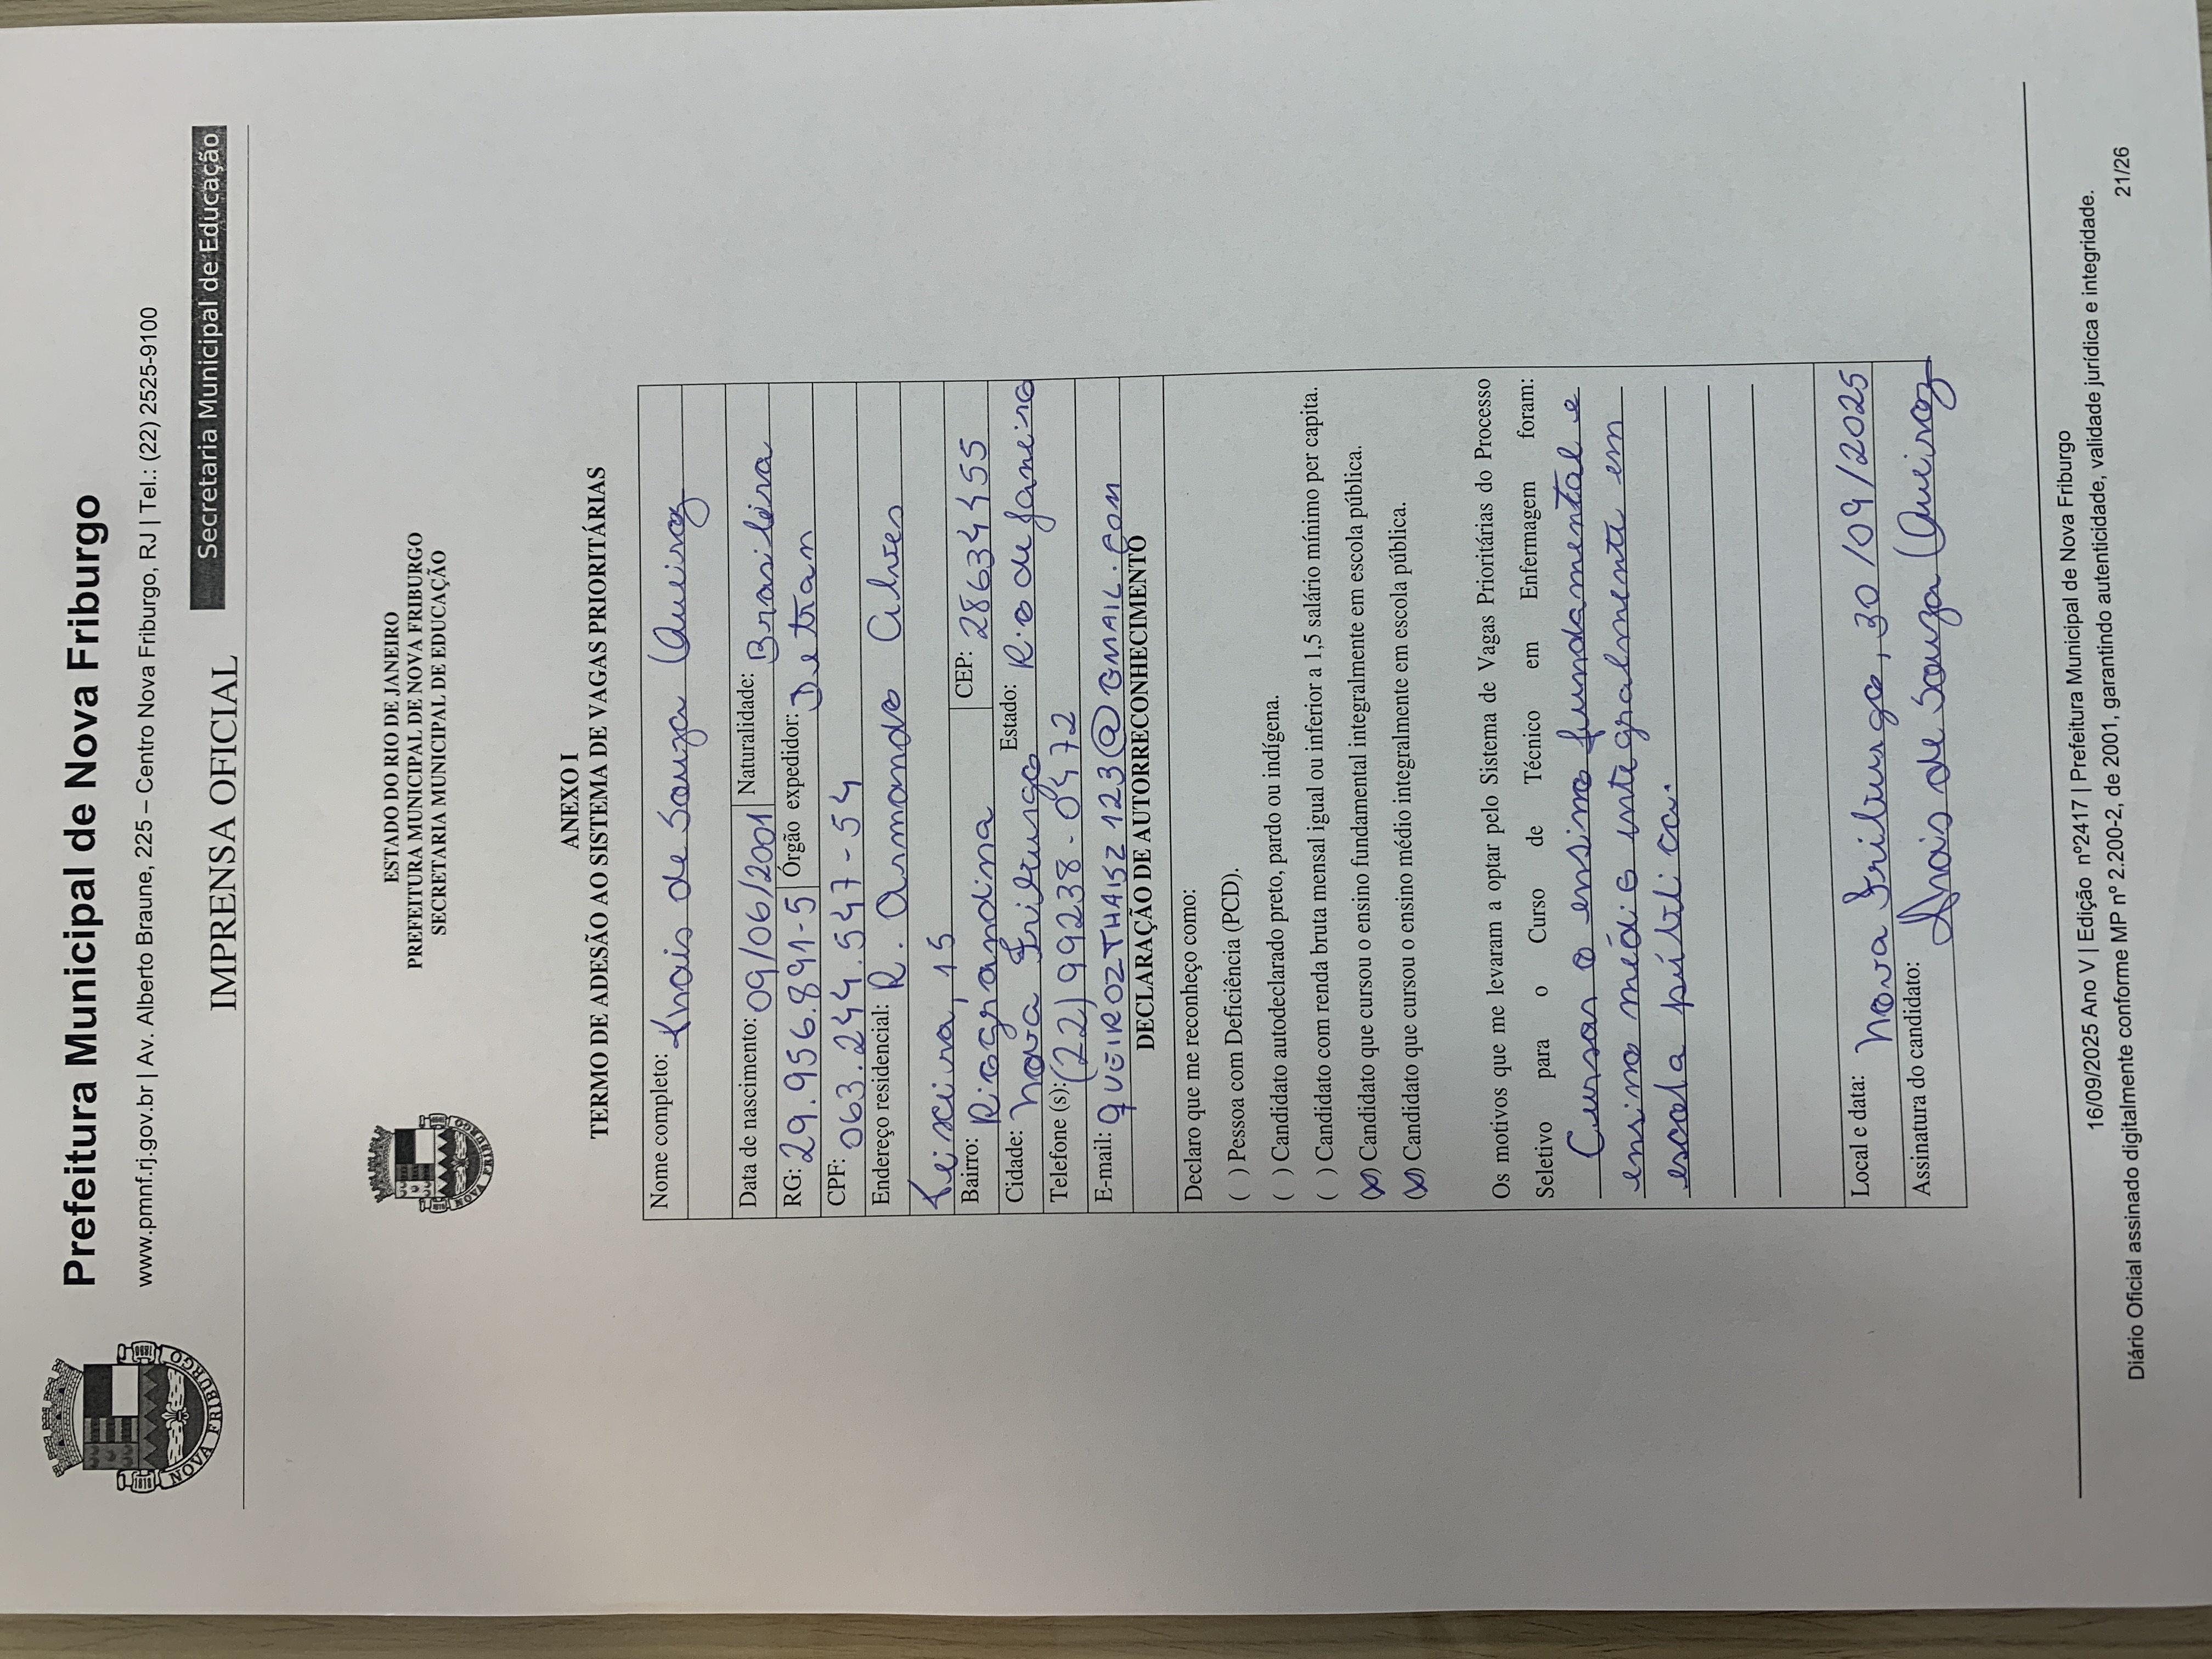 Prefeitura Municipal de Nova Friburgo
www.pmnf.rj.gov.br | Av. Alberto Braune, 225 – Centro Nova Friburgo, RJ | Tel.: (22) 2525-9100
Secretaria Municipal de Educação
IMPRENSA OFICIAL
NOVA FRIBURGO
ESTADO DO RIO DE JANEIRO
PREFEITURA MUNICIPAL DE NOVA FRIBURGO
SECRETARIA MUNICIPAL DE EDUCAÇÃO
NOVA FRIBURGO
ANEXO I
TERMO DE ADESÃO AO SISTEMA DE VAGAS PRIORITÁRIAS
Nome completo: Thais de Souza Queiroz
Data de nascimento: 09/06/2001 Naturalidade: Brasileira
RG: 29.956.891-5 Órgão expedidor: Detran
CPF: 063.244.547-54
Endereço residencial: R. Armando Alves
Teixeira, 15
Bairro: Riograndina CEP: 28634455
Cidade: Nova Friburgo Estado: Rio de Janeiro
Telefone (s): (22) 99238-0472
E-mail: QUEIROZTHAISZ123@GMAIL.COM
DECLARAÇÃO DE AUTORRECONHECIMENTO
Declaro que me reconheço como:
( ) Pessoa com Deficiência (PCD).
( ) Candidato autodeclarado preto, pardo ou indígena.
( ) Candidato com renda bruta mensal igual ou inferior a 1,5 salário mínimo per capita.
(X) Candidato que cursou o ensino fundamental integralmente em escola pública.
(X) Candidato que cursou o ensino médio integralmente em escola pública.
Os motivos que me levaram a optar pelo Sistema de Vagas Prioritárias do Processo
Seletivo para o Curso de Técnico em Enfermagem foram:
Cursar o ensino fundamental e
ensino médio integralmente em
escola pública.
Local e data: Nova Friburgo, 30/09/2025
Assinatura do candidato: Thais de Souza Queiroz
16/09/2025 Ano V | Edição nº2417 | Prefeitura Municipal de Nova Friburgo
Diário Oficial assinado digitalmente conforme MP nº 2.200-2, de 2001, garantindo autenticidade, validade jurídica e integridade.
21/26